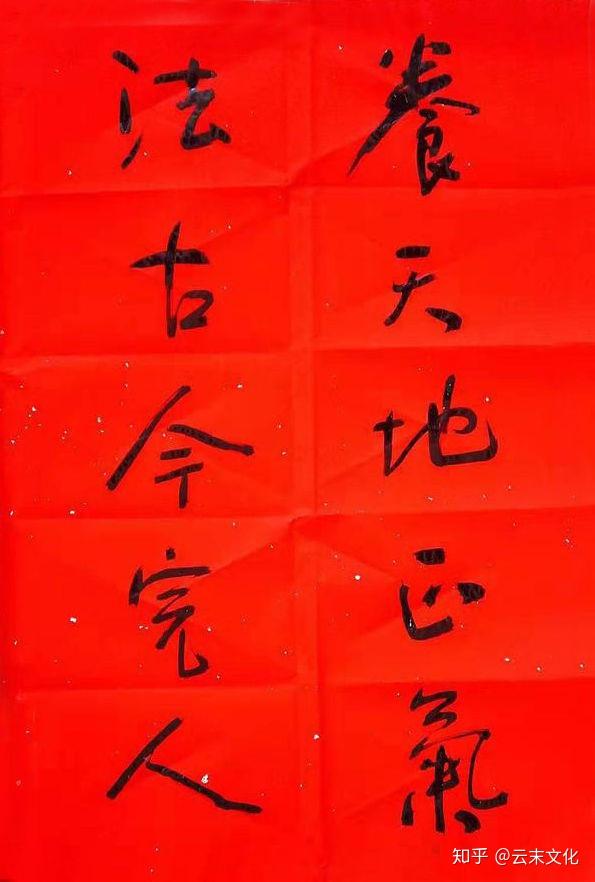 養天地正氣
法古今完人
知乎 @云末文化